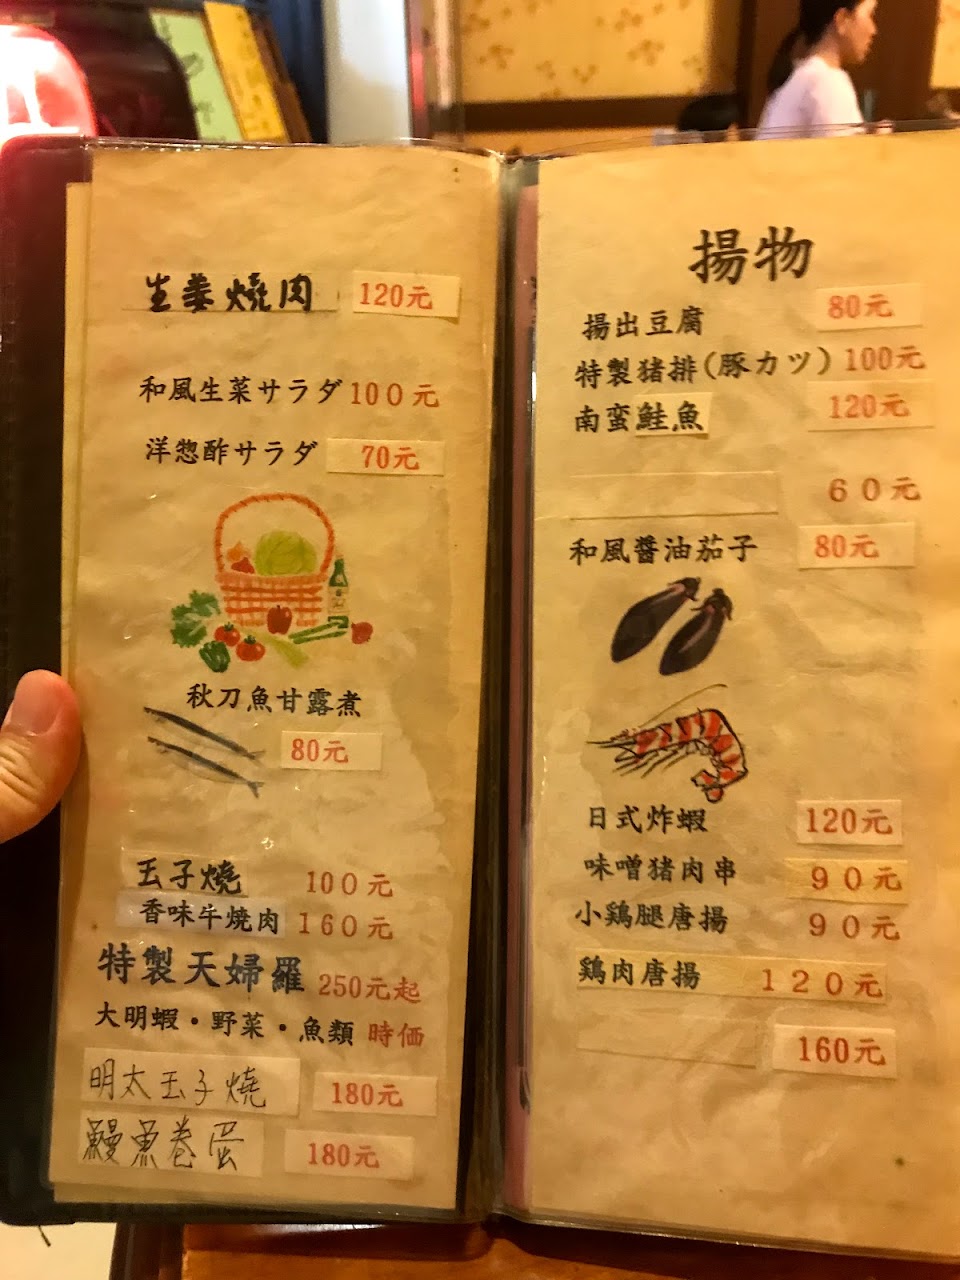 生姜燒肉 120元
和風生菜サラダ 100元
洋惣酢サラダ 70元
秋刀魚甘露煮
80元
玉子燒 100元
香味牛燒肉 160元
特製天婦羅 250元起
大明蝦・野菜・魚類 時価
明太玉子燒 180元
鰻魚卷蛋 180元
揚物
揚出豆腐 80元
特製猪排(豚カツ) 100元
南蛮鮭魚 120元
60元
和風醬油茄子 80元
日式炸蝦 120元
味噌猪肉串 90元
小鶏腿唐揚 90元
鶏肉唐揚 120元
160元